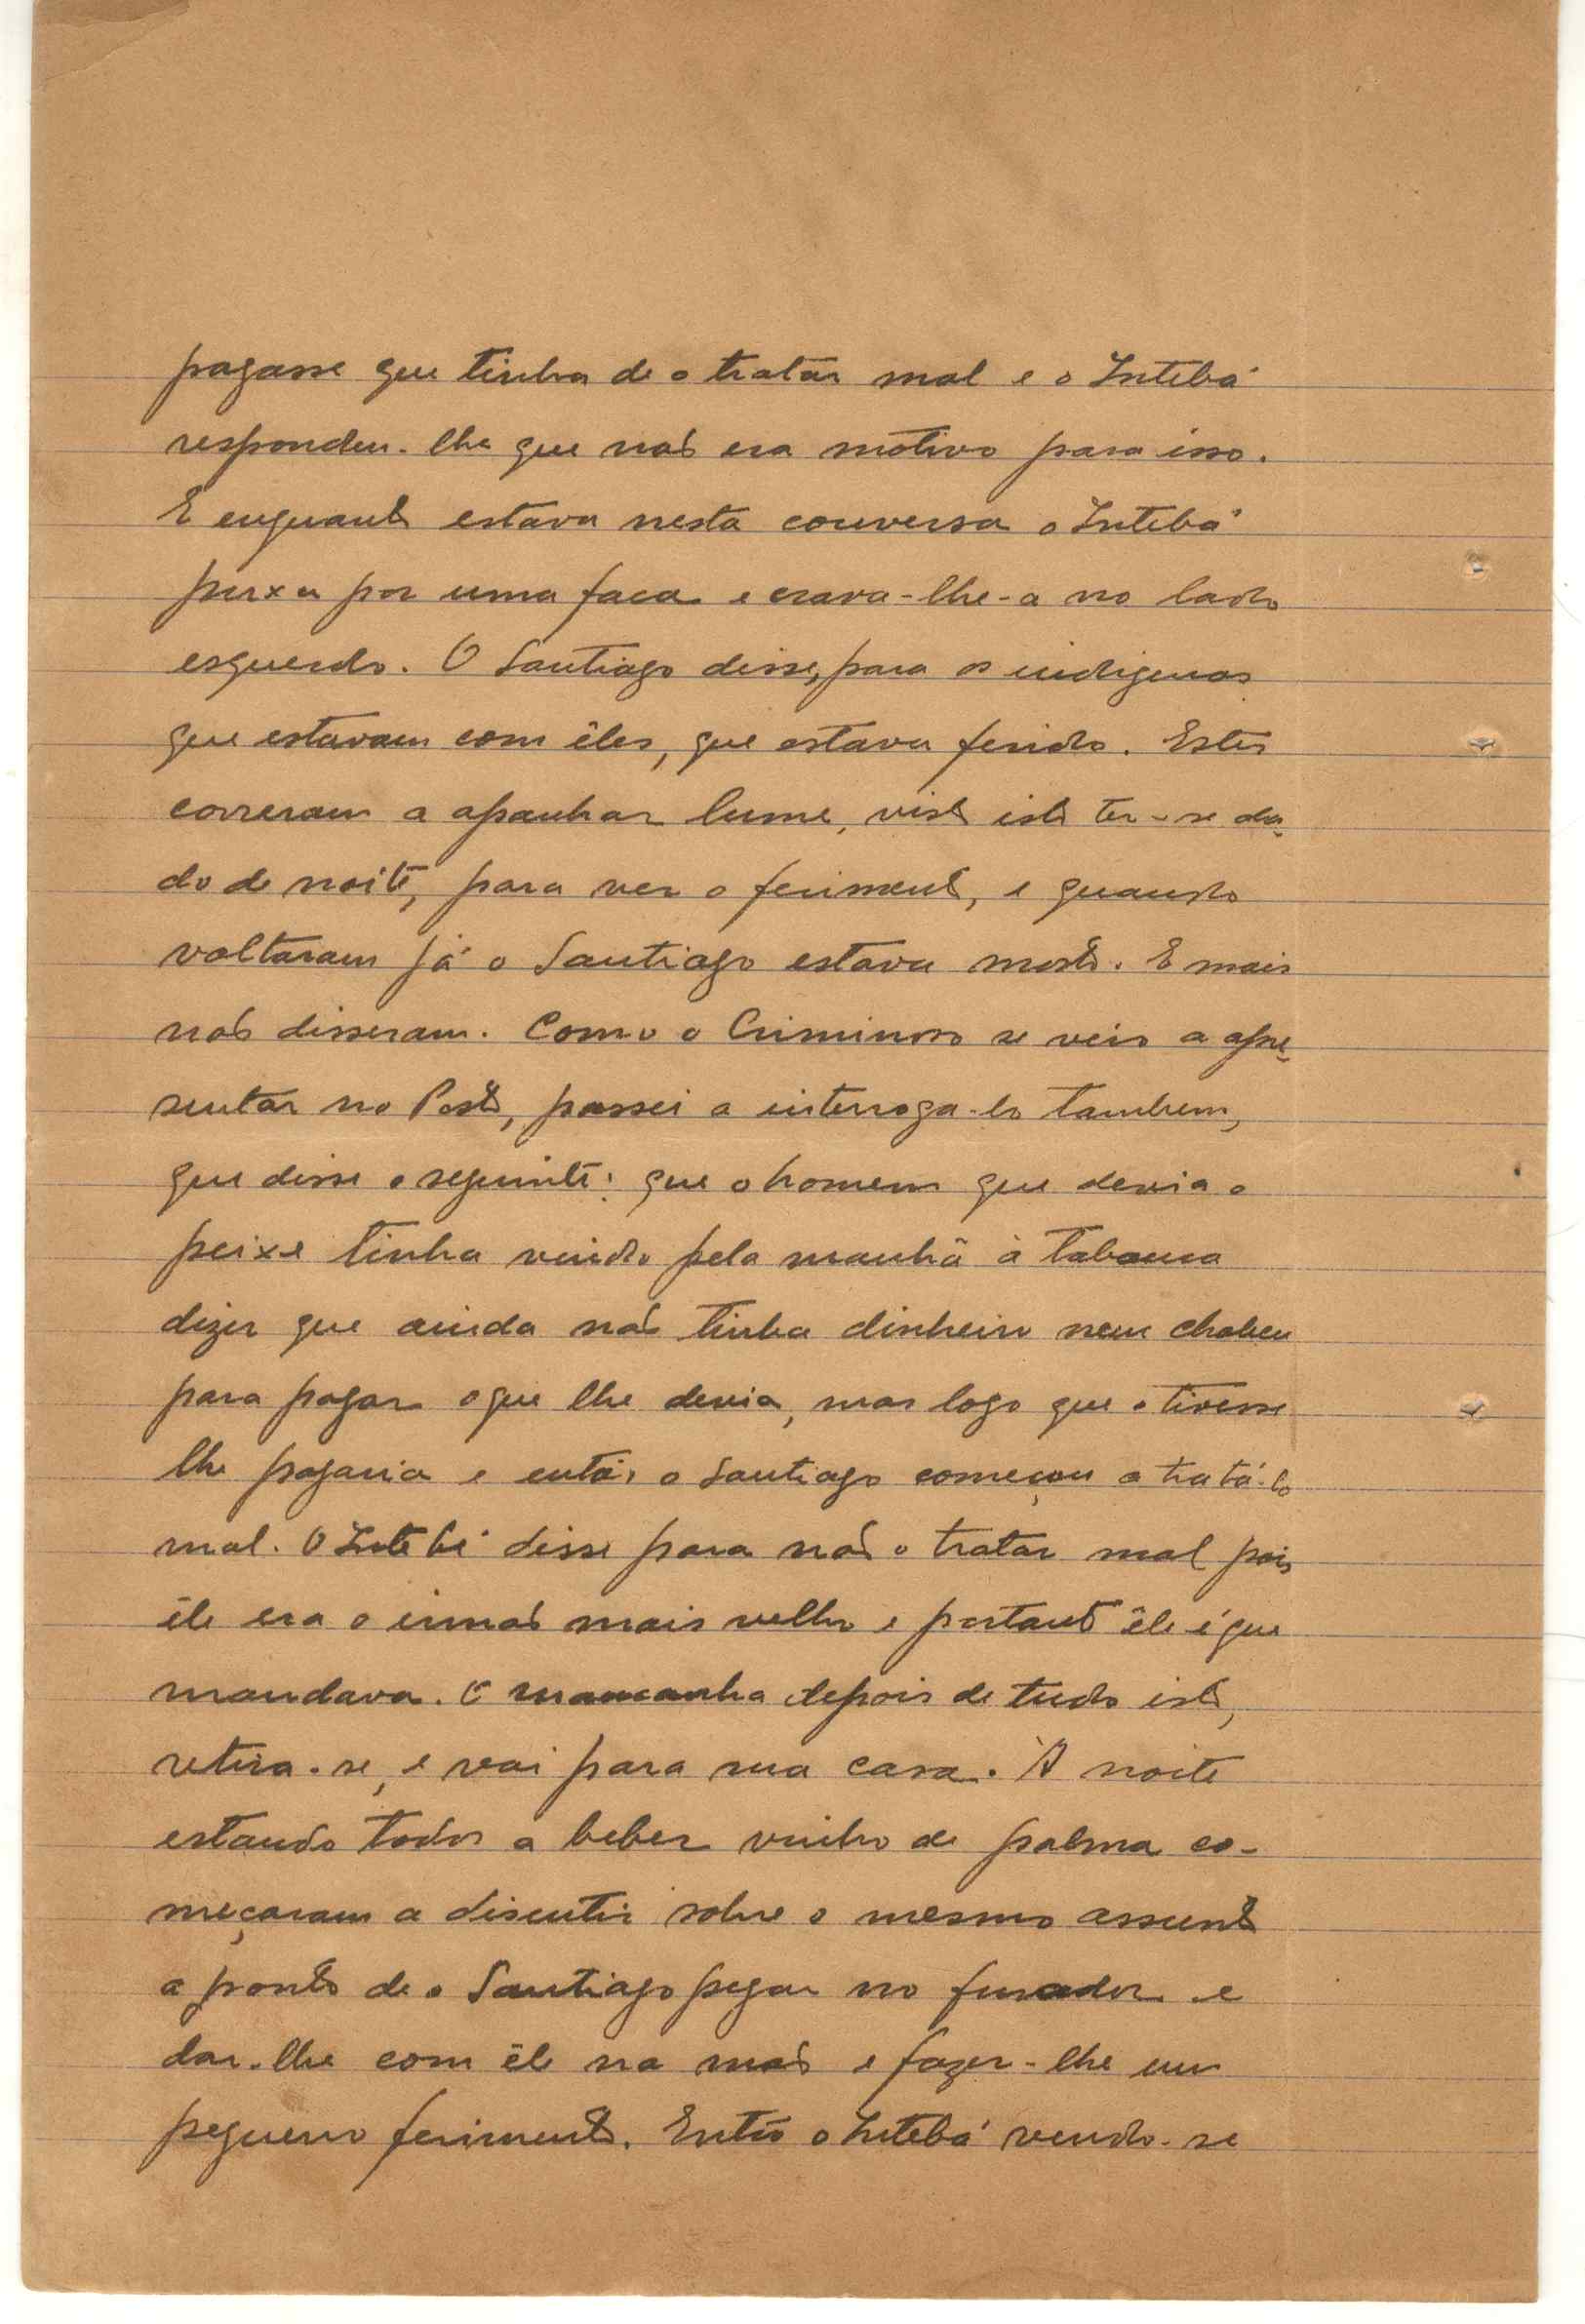 pagasse que tinha de o tratar mal e o Intebá
respondeu-lhe que não era motivo para isso.
E enquanto estava nesta conversa o Intebá
puxa por uma faca e crava-lhe-a no lado
esquerdo. O Santiago disse, para os indigenas
que estavam com êles, que estava ferido. Estes
correram a apanhar lume, visto isto ter-se da-
do de noite, para ver o ferimento, e quando
voltaram já o Santiago estava morto. E mais
não disseram. Como o Criminoso se veio a apre-
sentar no Posto, passei a interroga-lo tambem,
que disse o seguinte: que o homem que devia o
peixe tinha vindo pela manhã à tabanca
dizer que ainda não tinha dinheiro nem chabeu
para pagar o que lhe devia, mas logo que o tivesse
lhe pagaria e então o Santiago começou a tratá-lo
mal. O Intebá disse para não o tratar mal pois
êle era o irmão mais velho e portanto êle é que
mandava. O mancanha depois de tudo isto,
retira-se, e vai para sua casa. À noite
estando todos a beber vinho de palma co-
meçaram a discutir sobre o mesmo assunto
a ponto de o Santiago pegar no furador e
dar-lhe com êle na mão e fazer-lhe um
pequeno ferimento. Então o Intebá vendo-se